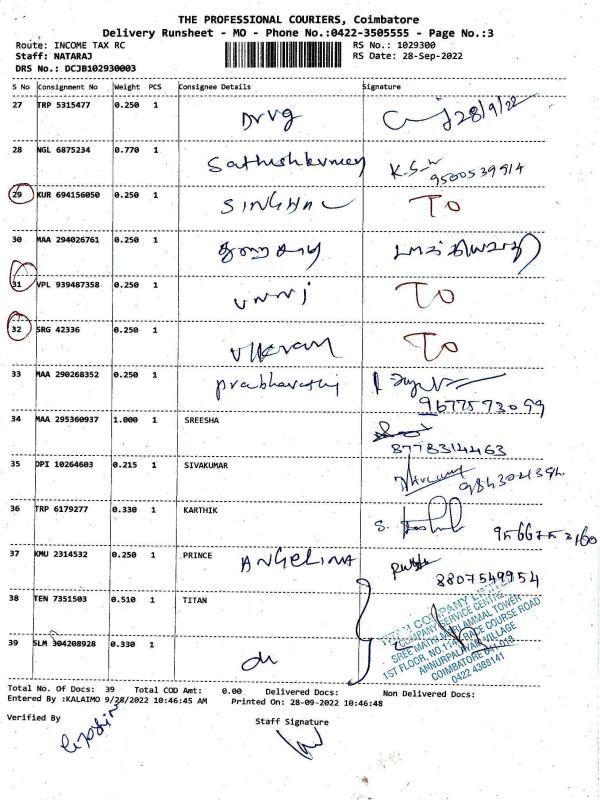 THE PROFESSIONAL COURIERS, Coimbatore
Delivery Runsheet - MO - Phone No.:0422-3505555 - Page No.:3
Route: INCOME TAX RC RS No.: 1029300
Staff: NATARAJ RS Date: 28-Sep-2022
DRS No.: DCJB102930003
S No Consignment No Weight PCS Consignee Details Signature
27 TRP 5315477 0.250 1 Drvg 28/9/22
28 NGL 6875234 0.770 1 Sathishkumar K.S 9500539914
29 KUR 694156050 0.250 1 TO
30 MAA 294026761 0.250 1
31 VPL 939487358 0.250 1 TO
32 SRG 42336 0.250 1 Vikram TO
33 MAA 290268352 0.250 1 prabhavathi 9677573099
34 MAA 295360937 1.000 1 SREESHA 8778314463
35 DPI 10264603 0.215 1 SIVAKUMAR
36 TRP 6179277 0.330 1 KARTHIK
37 KMU 2314532 0.250 1 PRINCE ANGELINA 8807549954
38 TEN 7351503 0.510 1 TITAN
39 SLM 304208928 0.330 1
TITAN COMPANY LIMITED
COMPANY SERVICE CENTRE
1ST FLOOR, RACE COURSE ROAD
COIMBATORE 641 018
0422 4388141
Total No. Of Docs: 39 Total COD Amt: 0.00 Delivered Docs: Non Delivered Docs:
Entered By :KALAIMO 9/28/2022 10:46:45 AM Printed On: 28-09-2022 10:46:48
Verified By Staff Signature